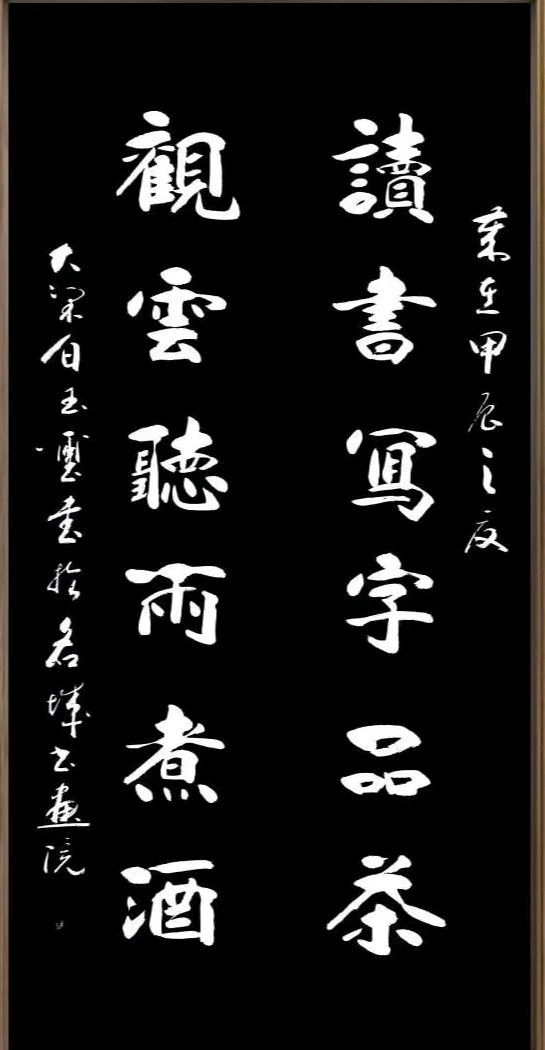 歲在甲辰之夏
讀書寫字品茶
觀雲聽雨煮酒
大梁白玉璽書於名城書畫院